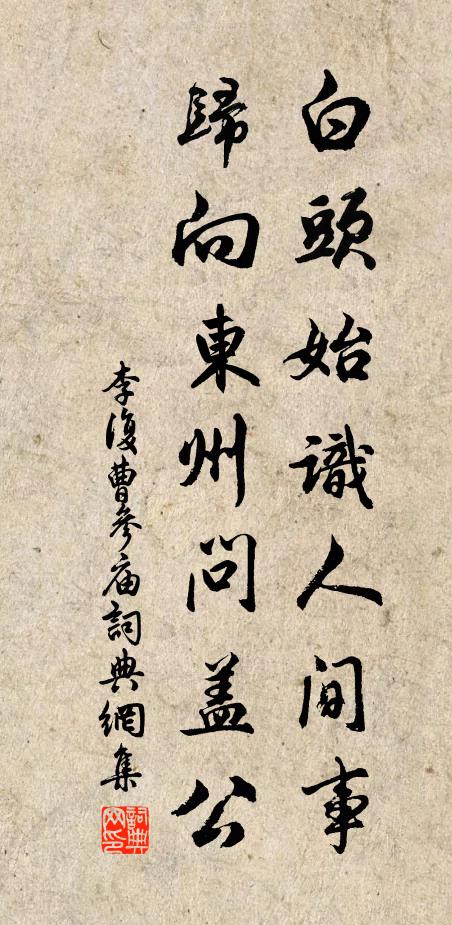 白頭始識人间事
歸向東州問盖公
李復曹參庙詞典網集
詞典网印